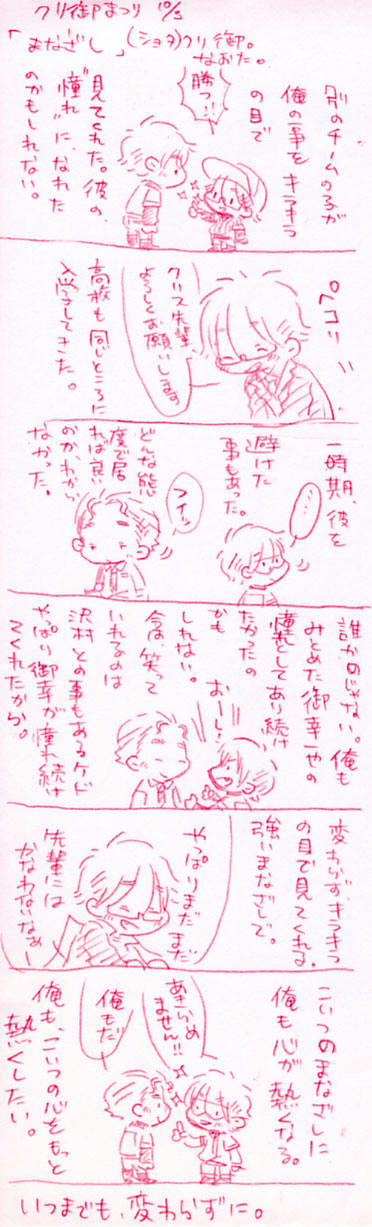 クリ御まつり 10/3
「まなざし」(ショタ)クリ御。
なおた。
別のチームの子が
俺の事をキラキラ
の目で
勝つ!!
見てくれた。彼の、
"憧れ"に、なれた
のかもしれない。
ペコリ
クリス先輩
よろしくお願いします
高校も同じところに
入学してきた。
一時期、彼を
避けた
事もあった。
・・・
フイッ
どんな態
度で居
れば良い
のか、わからな
なかった。
誰かのじゃない。俺も
みとめた御幸一也の
憧れとしてあり続け
たかったの
かも
しれない。
おーし!
今は、笑って
いれるのは
沢村との事もあるケド
やっぱり御幸が憧れ続け
てくれたから。
変わらず、キラキラ
の目で見てくれる、
強いまなざしで。
やっぱりまだまだ
先輩には
かなわないなぁー
こいつのまなざしに
俺も心が熱くなる。
あきらめ
ません!!
俺もだ
俺も、こいつの心をもっと
熱くしたい。
いつまでも、変わらずに。